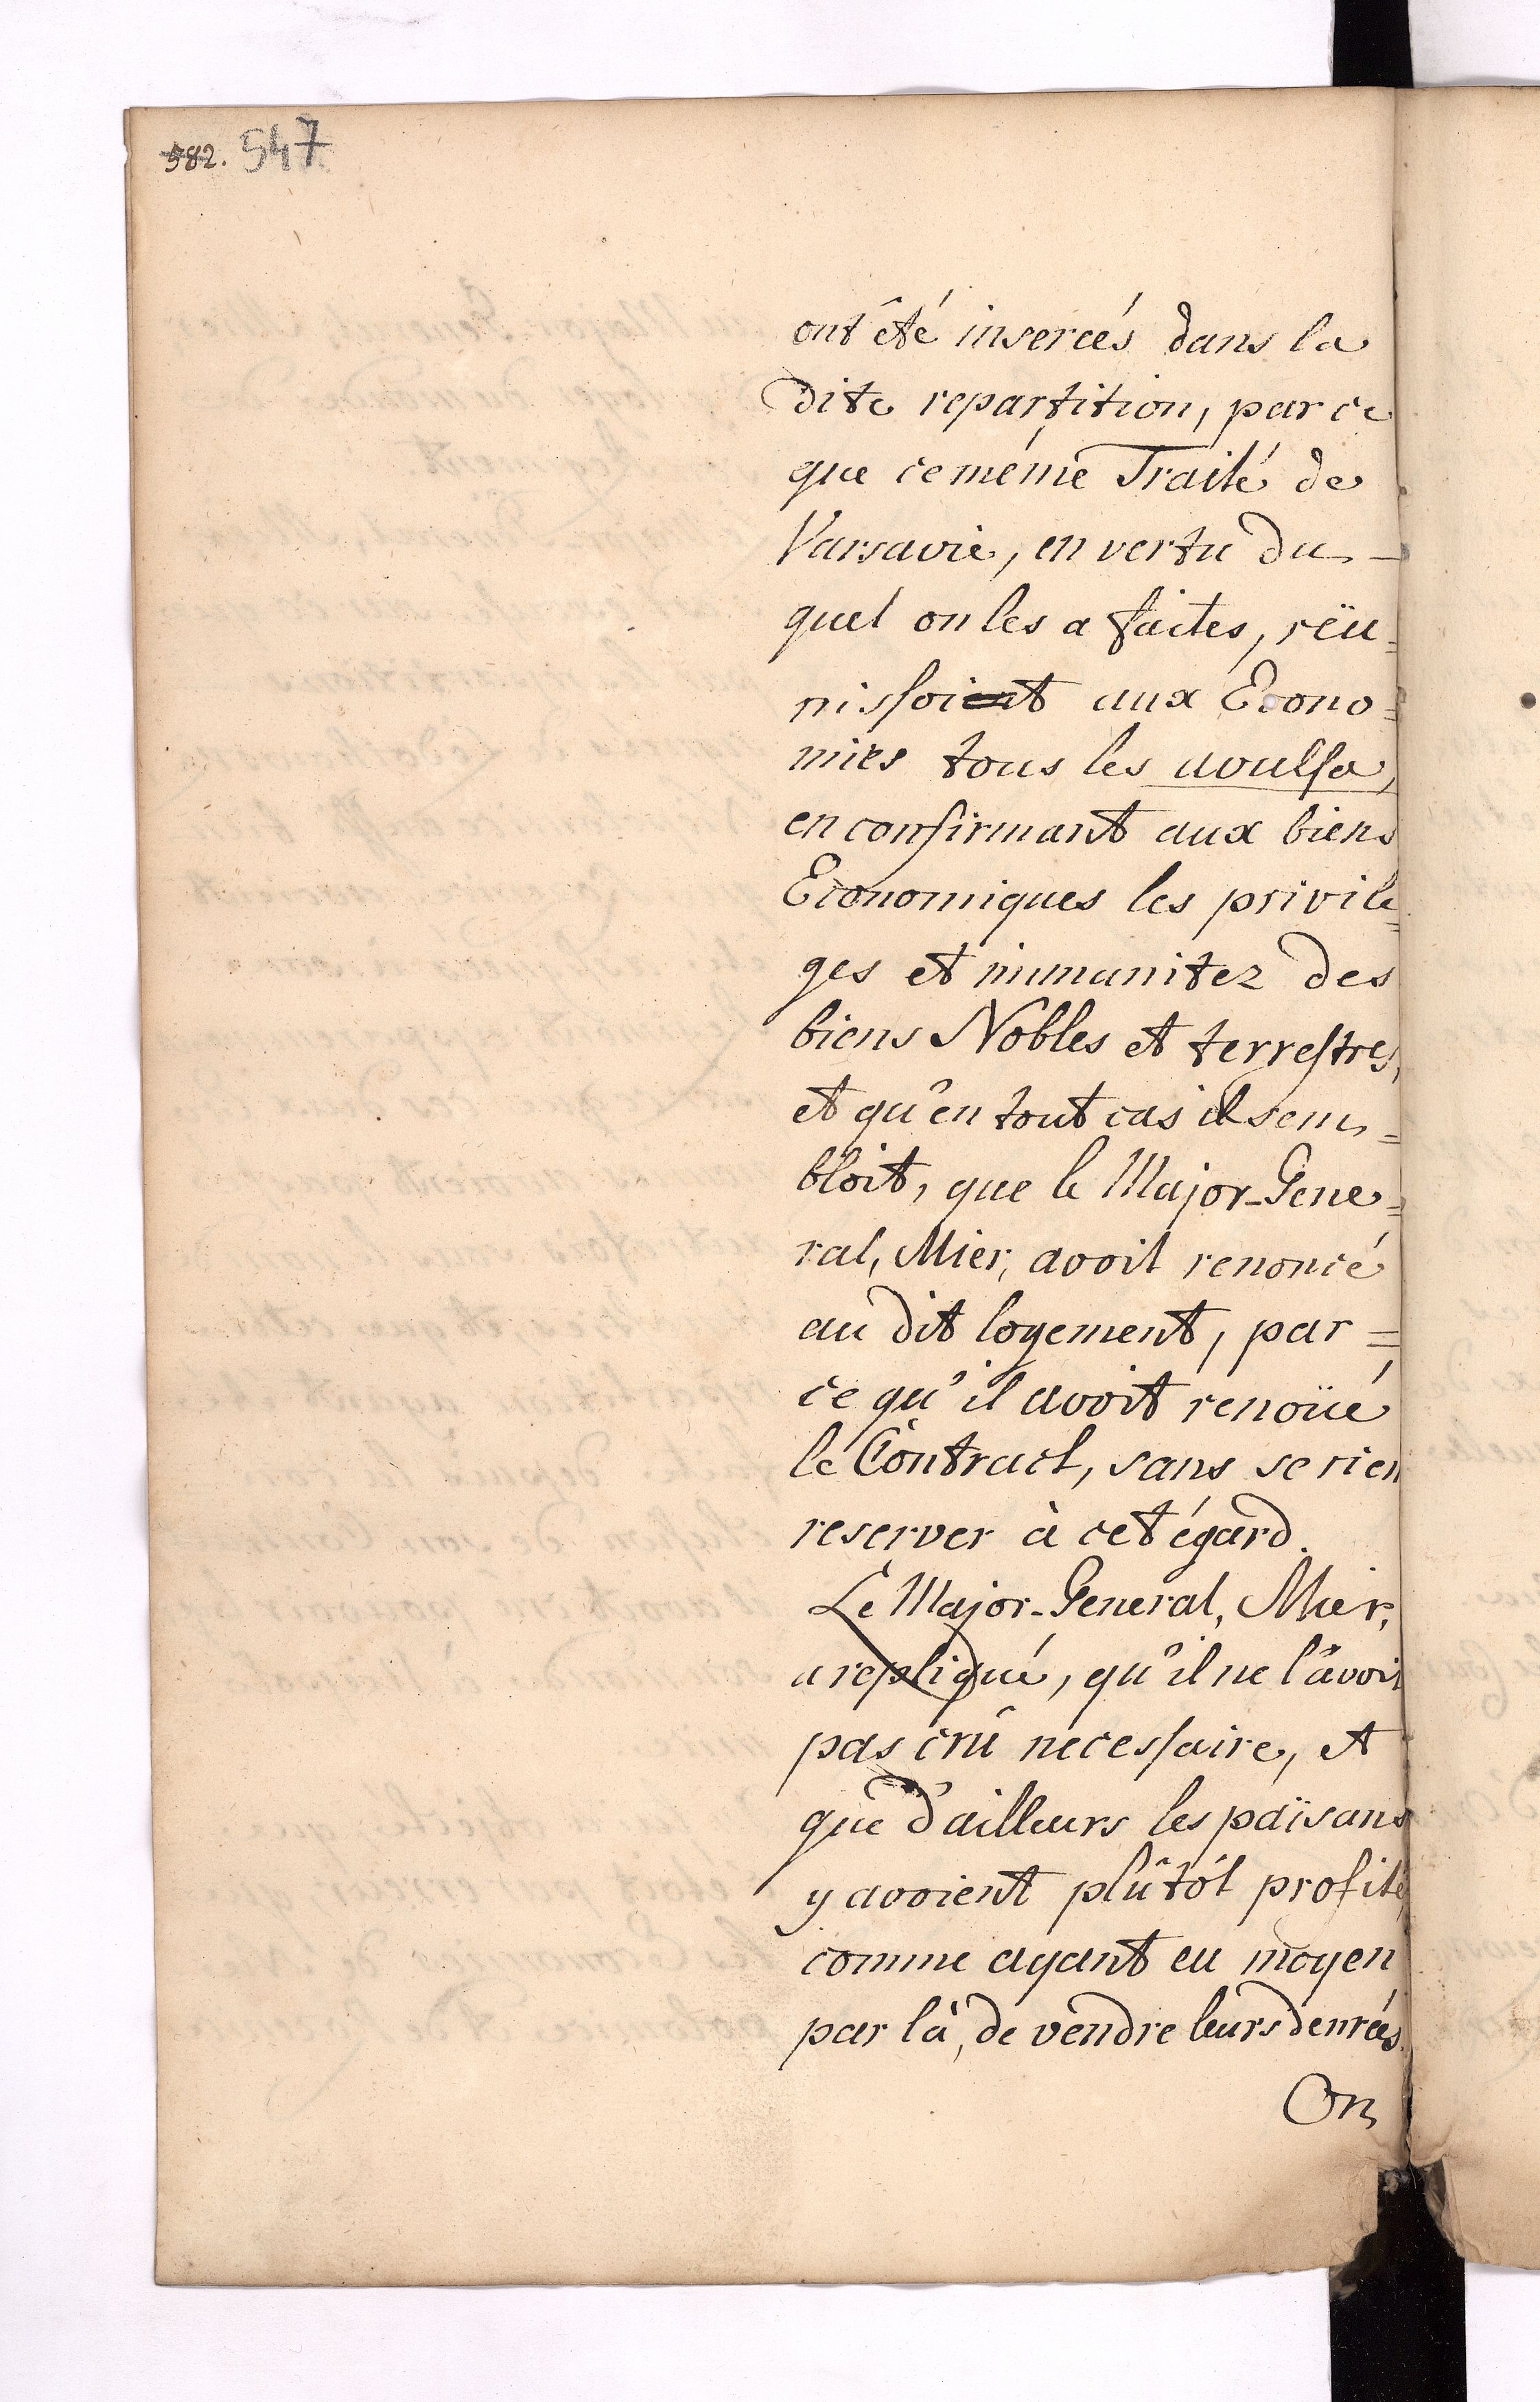 582. 547
ont êté inserées dans la
dite repartition, par ce
que ce même Traité de
Varsavie, en vertu du-
quel on les a faites, rëu=
nissoit aux Econo=
mies tous les avulsa,
en confirmant aux biens
Economiques les privile=
ges et immunitez des
biens Nobles et terrestres,
et qu'en tout cas il sem=
bloit, que le Major-Gene=
ral, Mier, avoit renoncé
au dit logement, par=
ce qu'il avoit renoüé
le Contract, sans se rien
reserver à cet égard.
Le Major-General, Mier,
a repliqué, qu'il ne l'avoit
pas crû necessaire, et
que d'ailleurs les païsans
y avoient plûtôt profité,
comme ayant eu moyen
par là, de vendre leurs denrées.
On